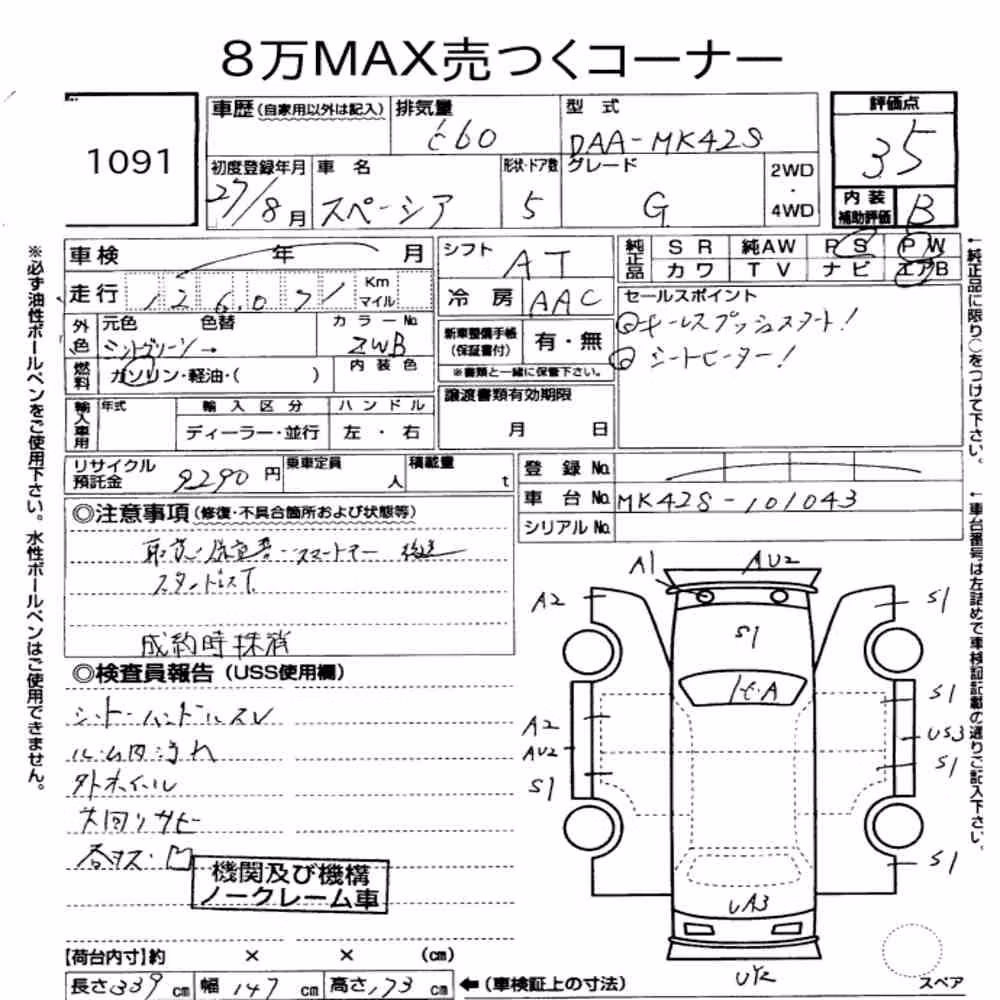 8万MAX売つくコーナー
1091
車歴(自家用以外は記入) 排気量 660 型式 DAA-MK42S
評価点 35
初度登録年月 27/8月 車名 スペーシア 形状・ドア数 5 グレード G 2WD・4WD
内装補助評価 B
車検 年 月
シフト AT
純正品 SR 純AW PS PW
カワ TV ナビ エアB
走行 126,071 Km マイル
冷房 AAC
セールスポイント
◎キーレスプッシュスタート!
◎シートヒーター!
外色 元色 ミントグリーン→ 色替 カラーNo. ZWB
新車整備手帳(保証書付) 有・無
※書類と一緒に保管下さい。
燃料 ガソリン・軽油・( ) 内装色
譲渡書類有効期限
月 日
輸入車用 年式 輸入区分 ハンドル
ディーラー・並行 左・右
リサイクル預託金 9290円 乗車定員 人 積載量 t
登録No.
車台No. MK42S-101043
シリアルNo.
◎注意事項(修復・不具合箇所および状態等)
取説・保証書・スマートキー 後送
成約時抹消
◎検査員報告(USS使用欄)
シート・ハンドルスレ
ルーム内汚れ
外ホイール
下回りサビ
各キズ・凹
機関及び機構
ノークレーム車
A1 AU2
A2 S1
S1
A2 S1
AU2 US3
S1 S1
S1
UA3
【荷台内寸】約 × × (cm)
長さ339cm 幅147cm 高さ173cm ←(車検証上の寸法)
スペア
※必ず油性ボールペンをご使用下さい。水性ボールペンはご使用できません。
←純正品に限り○をつけて下さい。
←車台番号は左詰めで車検証記載の通りご記入下さい。